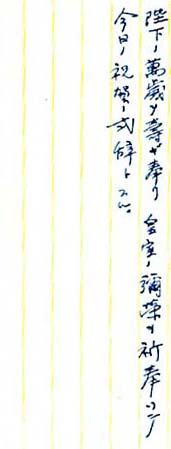 陛下ノ萬歳ヲ壽ギ奉リ 皇室ノ彌榮ヲ祈奉リテ
今日ノ祝賀ノ式辞トスル。